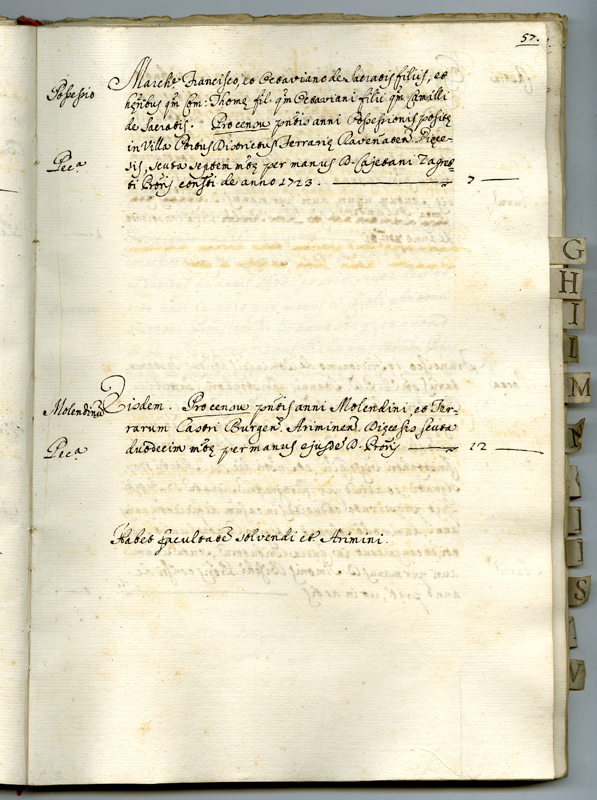 57.
Possessio
Marche Francisco, et Octaviano de Sacratis filiis, et
heredibus qm̃ Com: Thomę fil. qm̃ Octaviani filii qm̃ Camilli
de Sacratis. Pro censu pñtis anni Possessionis positę
in Villa Districtus Terrarię Ravenaten. Dięce-
Peca
sis, scuta septem mtę per manus D. Cajetani Zagret-
ti Proris consti de anno 1723. 7
Molendina
Eisdem. Pro censu pñtis anni Molendini, et Ter-
rarum Castri Burgen. Ariminen. Dięcesis scuta
Peca
duodecim mtę per manus ejusdẽ D. Proris 12
Habet facultatẽ solvendi et Arimini.
G
H
I
L
M
N
S
V